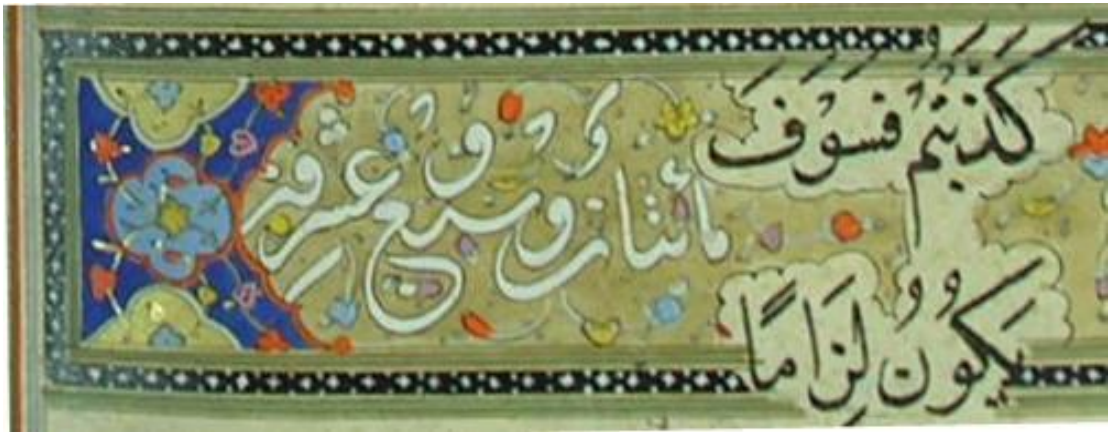 كَذَّبْتُمْ فَسَوْفَ
يَكُونُ لِزَامًا
مائتان وسبع وعشر